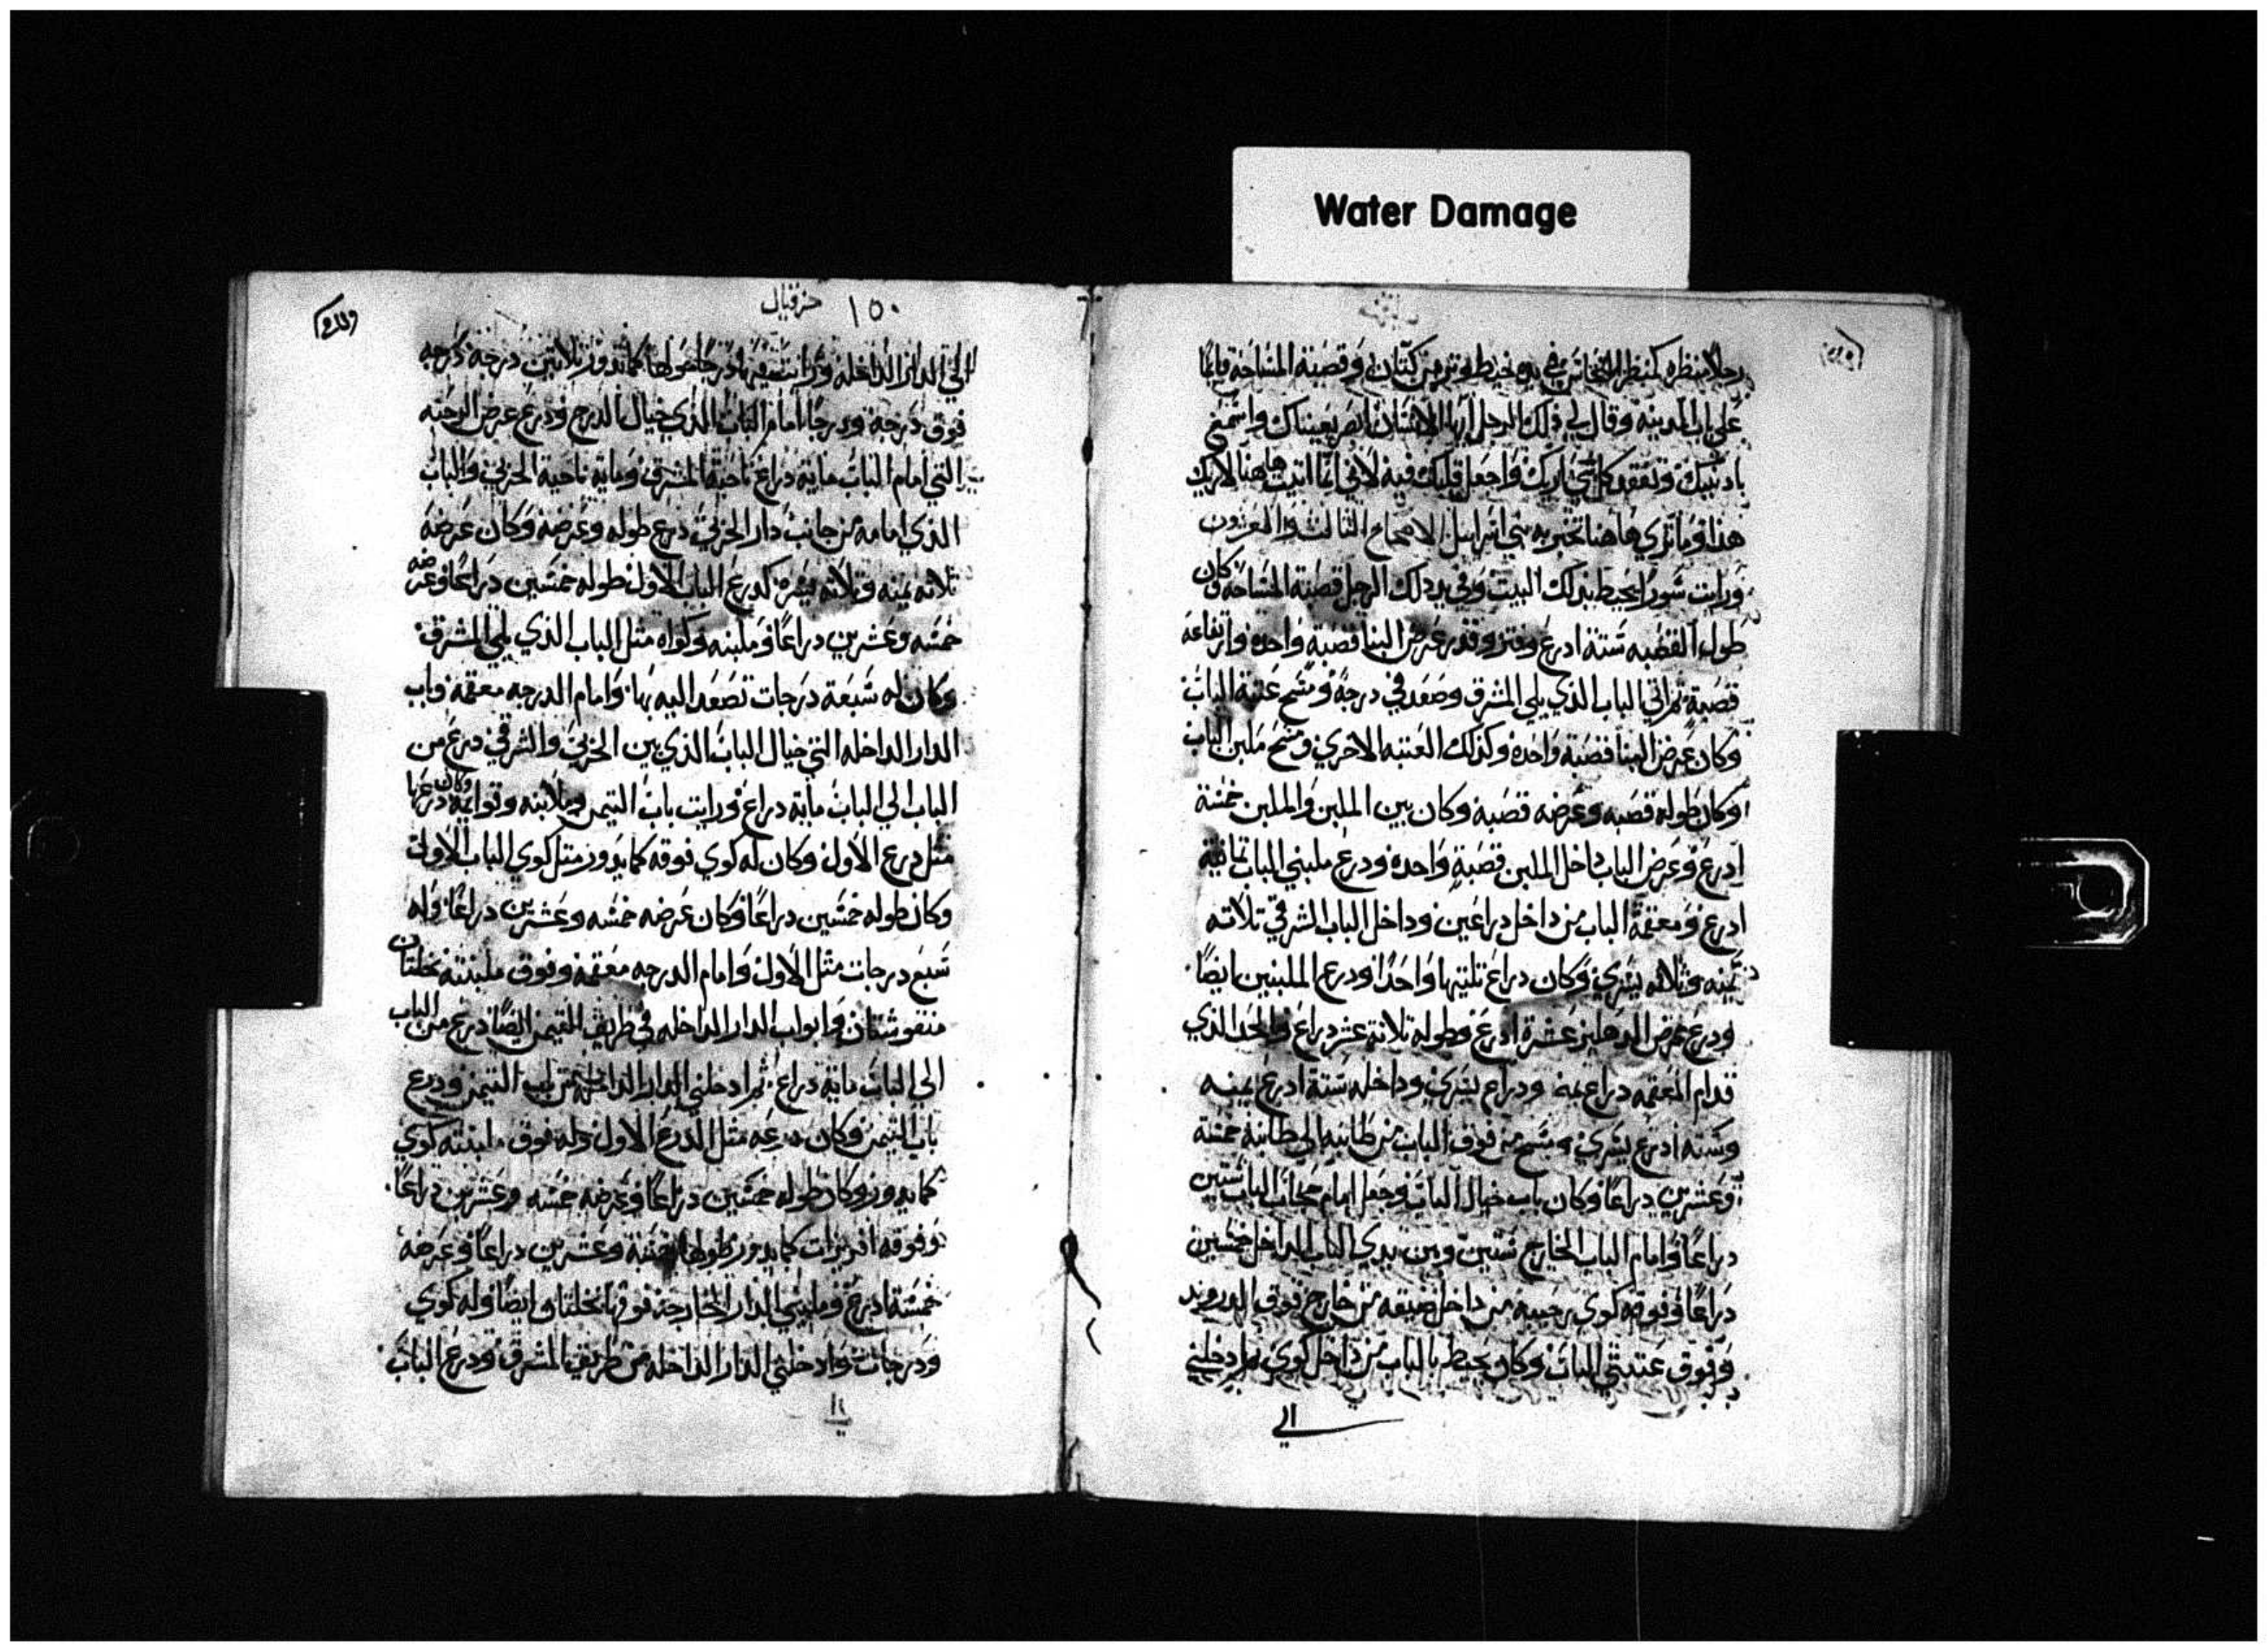 Water Damage
رجلاً منظره كمنظر النحاس في يده خيط وتر من كتان وقصبة المساحة قايمًا
على باب المدينة وقال لي ذلك الرجل ايها الانسان ابصر بعينيك واسمع
بادنيك وتفقد كل شي اريك واجعل قلبك فيه لاني انما اتيت هاهنا لاريك
هذا وما تري هاهنا تخبر به بني اسراييل الاصحاح الثالث والعشرون
ورايت سورًا يحيط بذلك البيت وفي يد ذلك الرجل قصبة المساحة وكان
طول القصبه ستة ادرع وفتر وقدر عرض البنا قصبة واحدة وارتفاعه
قصبة ثم اتي الباب الذي يلي المشرق وصعد في درجة ومسح عتبة الباب
وكان عرض البنا قصبة واحدة وكذلك العتبه الاخري ومسح ملبن الباب
وكان طوله قصبه وعرضه قصبة وكان بين الملبن والملبن خمسة
ادرع وعرض الباب داخل الملبن قصبة واحده ودرع ملبني الباب تمانية
ادرع ومعقمة الباب من داخل دراعين وداخل الباب الشرقي تلاته
يمينه وتلاته يسري وكان دراع تلتيها واحدًا ودرع الملبنين ايضًا
ودرع عرض الدهليز عشرة ادرع وطوله تلاتة عشر دراع والحد الذي
قدام المعقمه دراع يمنه ودراع يسري وداخله ستة ادرع يمينه
وستة ادرع يسري ومسح من فوق الباب من طانيه الي طانية خمسة
وعشرين دراعًا وكان باب خيال الباب وجعل امام الباب ستين
دراعًا وامام الباب الخارج ستين وبين يدي الباب الداخل خمسين
دراعًا وفوقه كوي رحيبة من داخل ضيقه من خارج فوق الدروند
وفوق عتبتي الباب وكان يحيط بالباب من داخل كوي ثم ادخلني
الي
١٥٠ حزقيال
الي الدار الداخله ورايت فيها درجًا حولها كما يدور تلاتين درجة درجه
فوق درجة ودرجًا امام الباب الذي خيال الدرج ودرع عرض الرحبه
التي امام الباب ماية دراع ناحية المشرق وماية ناحية الحربي والباب
الذي امامه من جانب دار الحربي درع طوله وعرضه وكان عرضه
تلاته يمنه وتلاته يسره كدرع الباب الاول طوله خمسين دراعًا وعرضه
خمسه وعشرين دراعًا وملبنه وكواه مثل الباب الذي يلي المشرق
وكان له سبعة درجات تصعد اليه بها وامام الدرجه معقمه وباب
الدار الداخله التي خيال الباب الذي بين الحربي والشرقي درع من
الباب الي الباب ماية دراع ورايت باب التيمن وملابنه وقوايمه وكان درعها
مثل درع الاول وكان له كوي فوقه كما يدور مثل كوي الباب الاول
وكان طوله خمسين دراعًا وكان عرضه خمسه وعشرين دراعًا وله
سبع درجات مثل الاول وامام الدرجه معقمة وفوق ملبنته نخلتان
منقوشتان وابواب الدار الداخله في طريق التيمن ايضًا درع من الباب
الي الباب ماية دراع ثم ادخلني الدار الداخله من باب التيمن ودرع
باب التيمن وكان درعه مثل الدرع الاول وله فوق ملبنته كوي
كما يدور وكان طوله خمسين دراعًا وعرضه خمسه وعشرين دراعًا
وفوقه افريزات كما يدور طولها خمسة وعشرين دراعًا وعرضه
خمسة ادرع وملبني الدار الخارجة فوقها نخلتان ايضًا وله كوي
ودرجات وادخلني الدار الداخله من طريق المشرق ودرع الباب